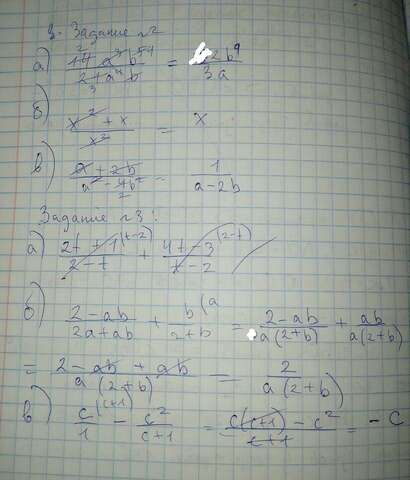 Задание №2
а) 14 a³ b⁵⁴ / 21 a⁴ b = 2b⁹ / 3a
б) x² + x / x² = x
в) a + 2b / a² - 4b² = 1 / a - 2b
Задание №3:
а) 2t + 1 / 2 - t + 4t - 3 / t - 2
б) 2 - ab / 2a + ab + b (a / 2 + b = 2 - ab / a(2+b) + ab / a(2+b)
= 2 - ab + ab / a (2+b) = 2 / a(2+b)
в) c (c+1) / 1 - c² / c+1 = c(c+1) - c² / c+1 = - c